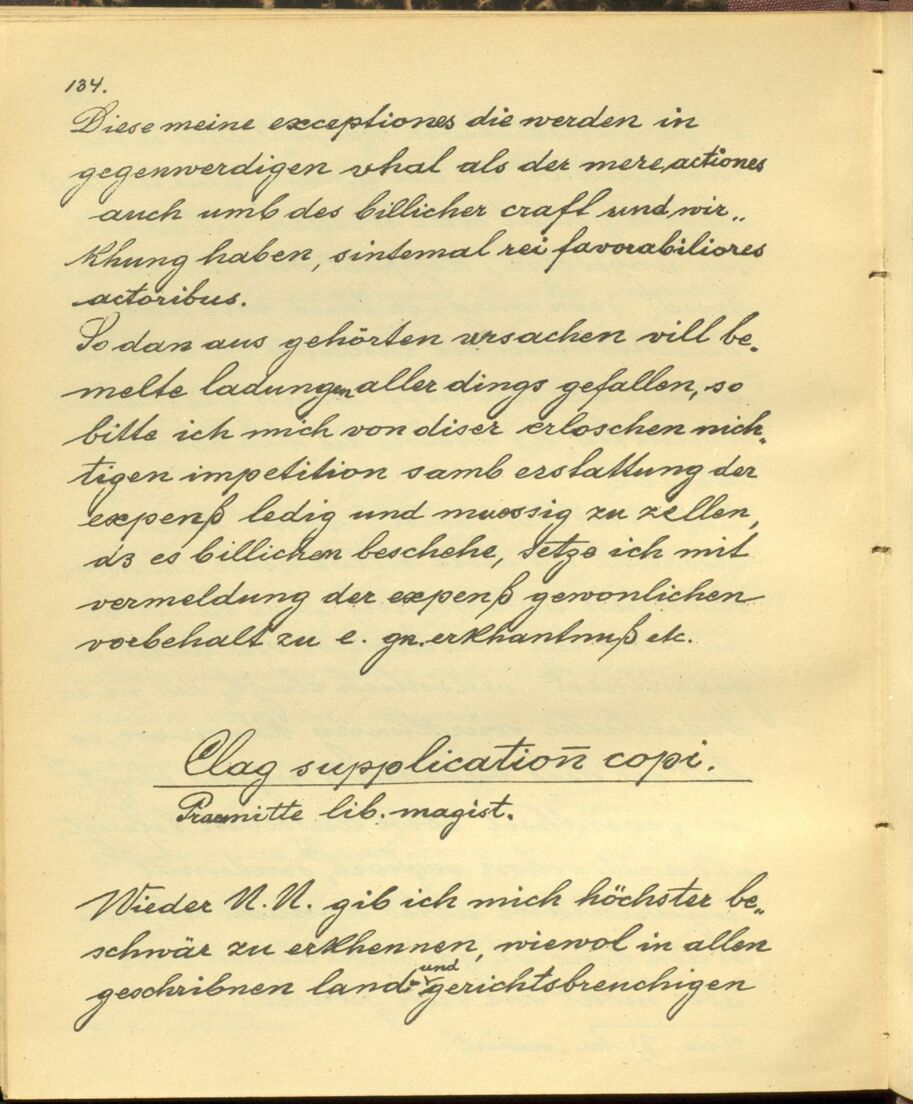 134.
Diese meine exceptiones die werden in
gegenwerdigen vhal als der mere actiones
auch umb des billicher craft und wir„
khung haben, sintemal rei favorabiliores
actoribus.
So dan aus gehörten ursachen vill be„
melte ladungen aller dings gefallen, so
bitte ich mich von diser erloschen nich„
tigen impetition samb erstattung der
expenß ledig und muessig zu zellen,
dz es billichen beschehe, setze ich mit
vermeldung der expenß gewonlichen
vorbehalt zu e. gn. erkhantnuß etc.
Clag supplication̄ copi.
Praemitte lib. magist.
Wieder N. N. gib ich mich höchster be„
schwär zu erkhennen, wiewol in allen
geschribnen land- und gerichtsbreuchigen